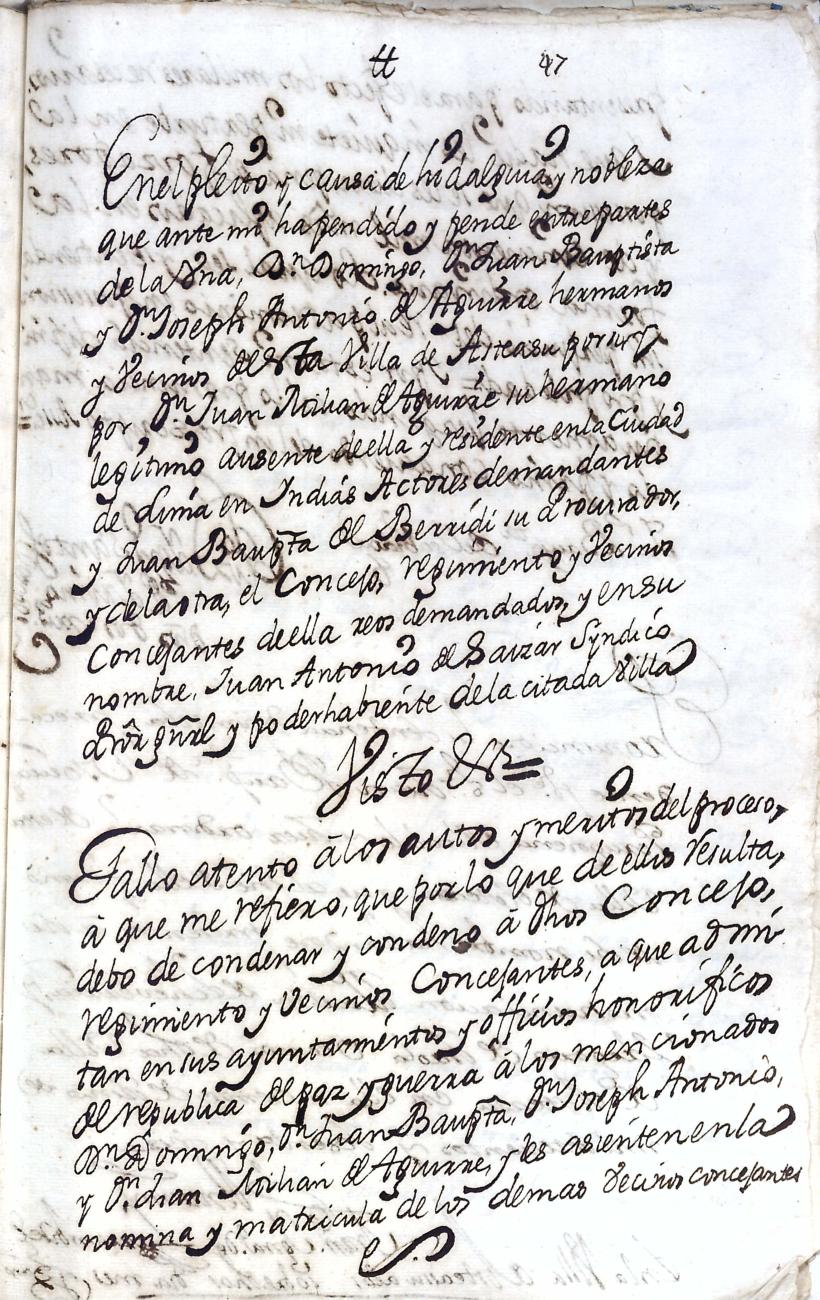 tt 47
En el pleito y causa de hidalguia y nobleza
que ante mi ha pendido y pende entre partes
de la Vna, Dn Domingo, Dn Juan Bauptista
y Dn Joseph Antonio de Aguirre hermanos
y Vecinos de esta Villa de Asteasu por si y
por Dn Juan Milian de Aguirre su hermano
legitimo ausente de ella y residente en la Ciudad
de Lima en Indias Actores demandantes
y Juan Baupta de Berridi su Procurador,
y de la otra, el Concejo, regimiento y Vecinos
Concejantes de ella reos demandados, y en su
nombre, Juan Antonio de Saizar Syndico
Pror gñrl y poderhabiente de la citada Villa
Visto &a=
Fallo atento â los autos y meritos del proceso,
â que me refiero, que por lo que de ellos resulta,
debo de condenar y condeno â dhos Concejo,
regimiento y Vecinos Concejantes, a que admi
tan en sus ayuntamientos y officios honorificos
de republica de paz y guerra â los mencionados
Dn Domingo, Dn Juan Baupta, Dn Joseph Antonio,
y Dn Juan Milian de Aguirre, y les asienten en la
nomina y matricula de los demas Vecinos concejantes